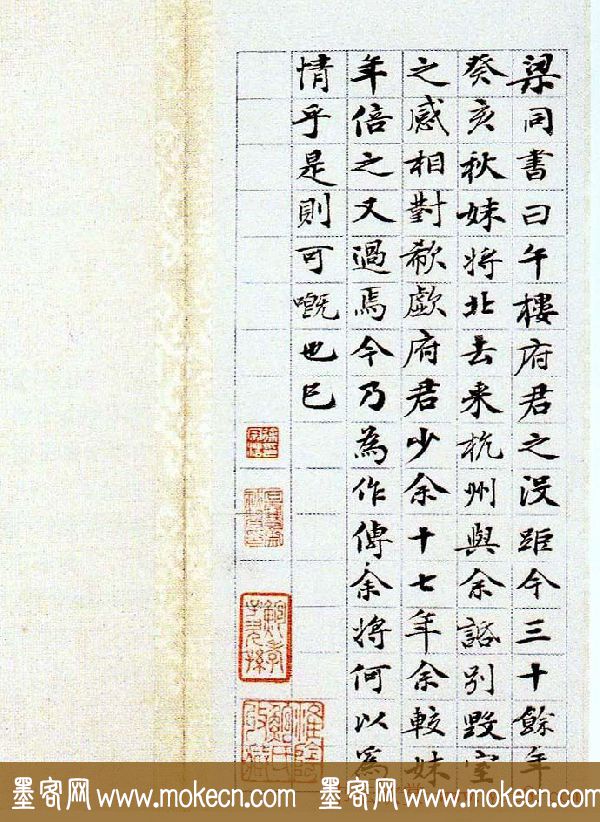 梁同書曰午樓府君之没距今三十餘年
癸亥秋妹将北去来杭州與余别毀室
之感相對欷歔府君少余十七年余較妹
年倍之又過焉今乃為作傳余将何以為
情乎是則可嘅也已
墨客网 www.mokecn.com 墨客网 www.mokecn.com